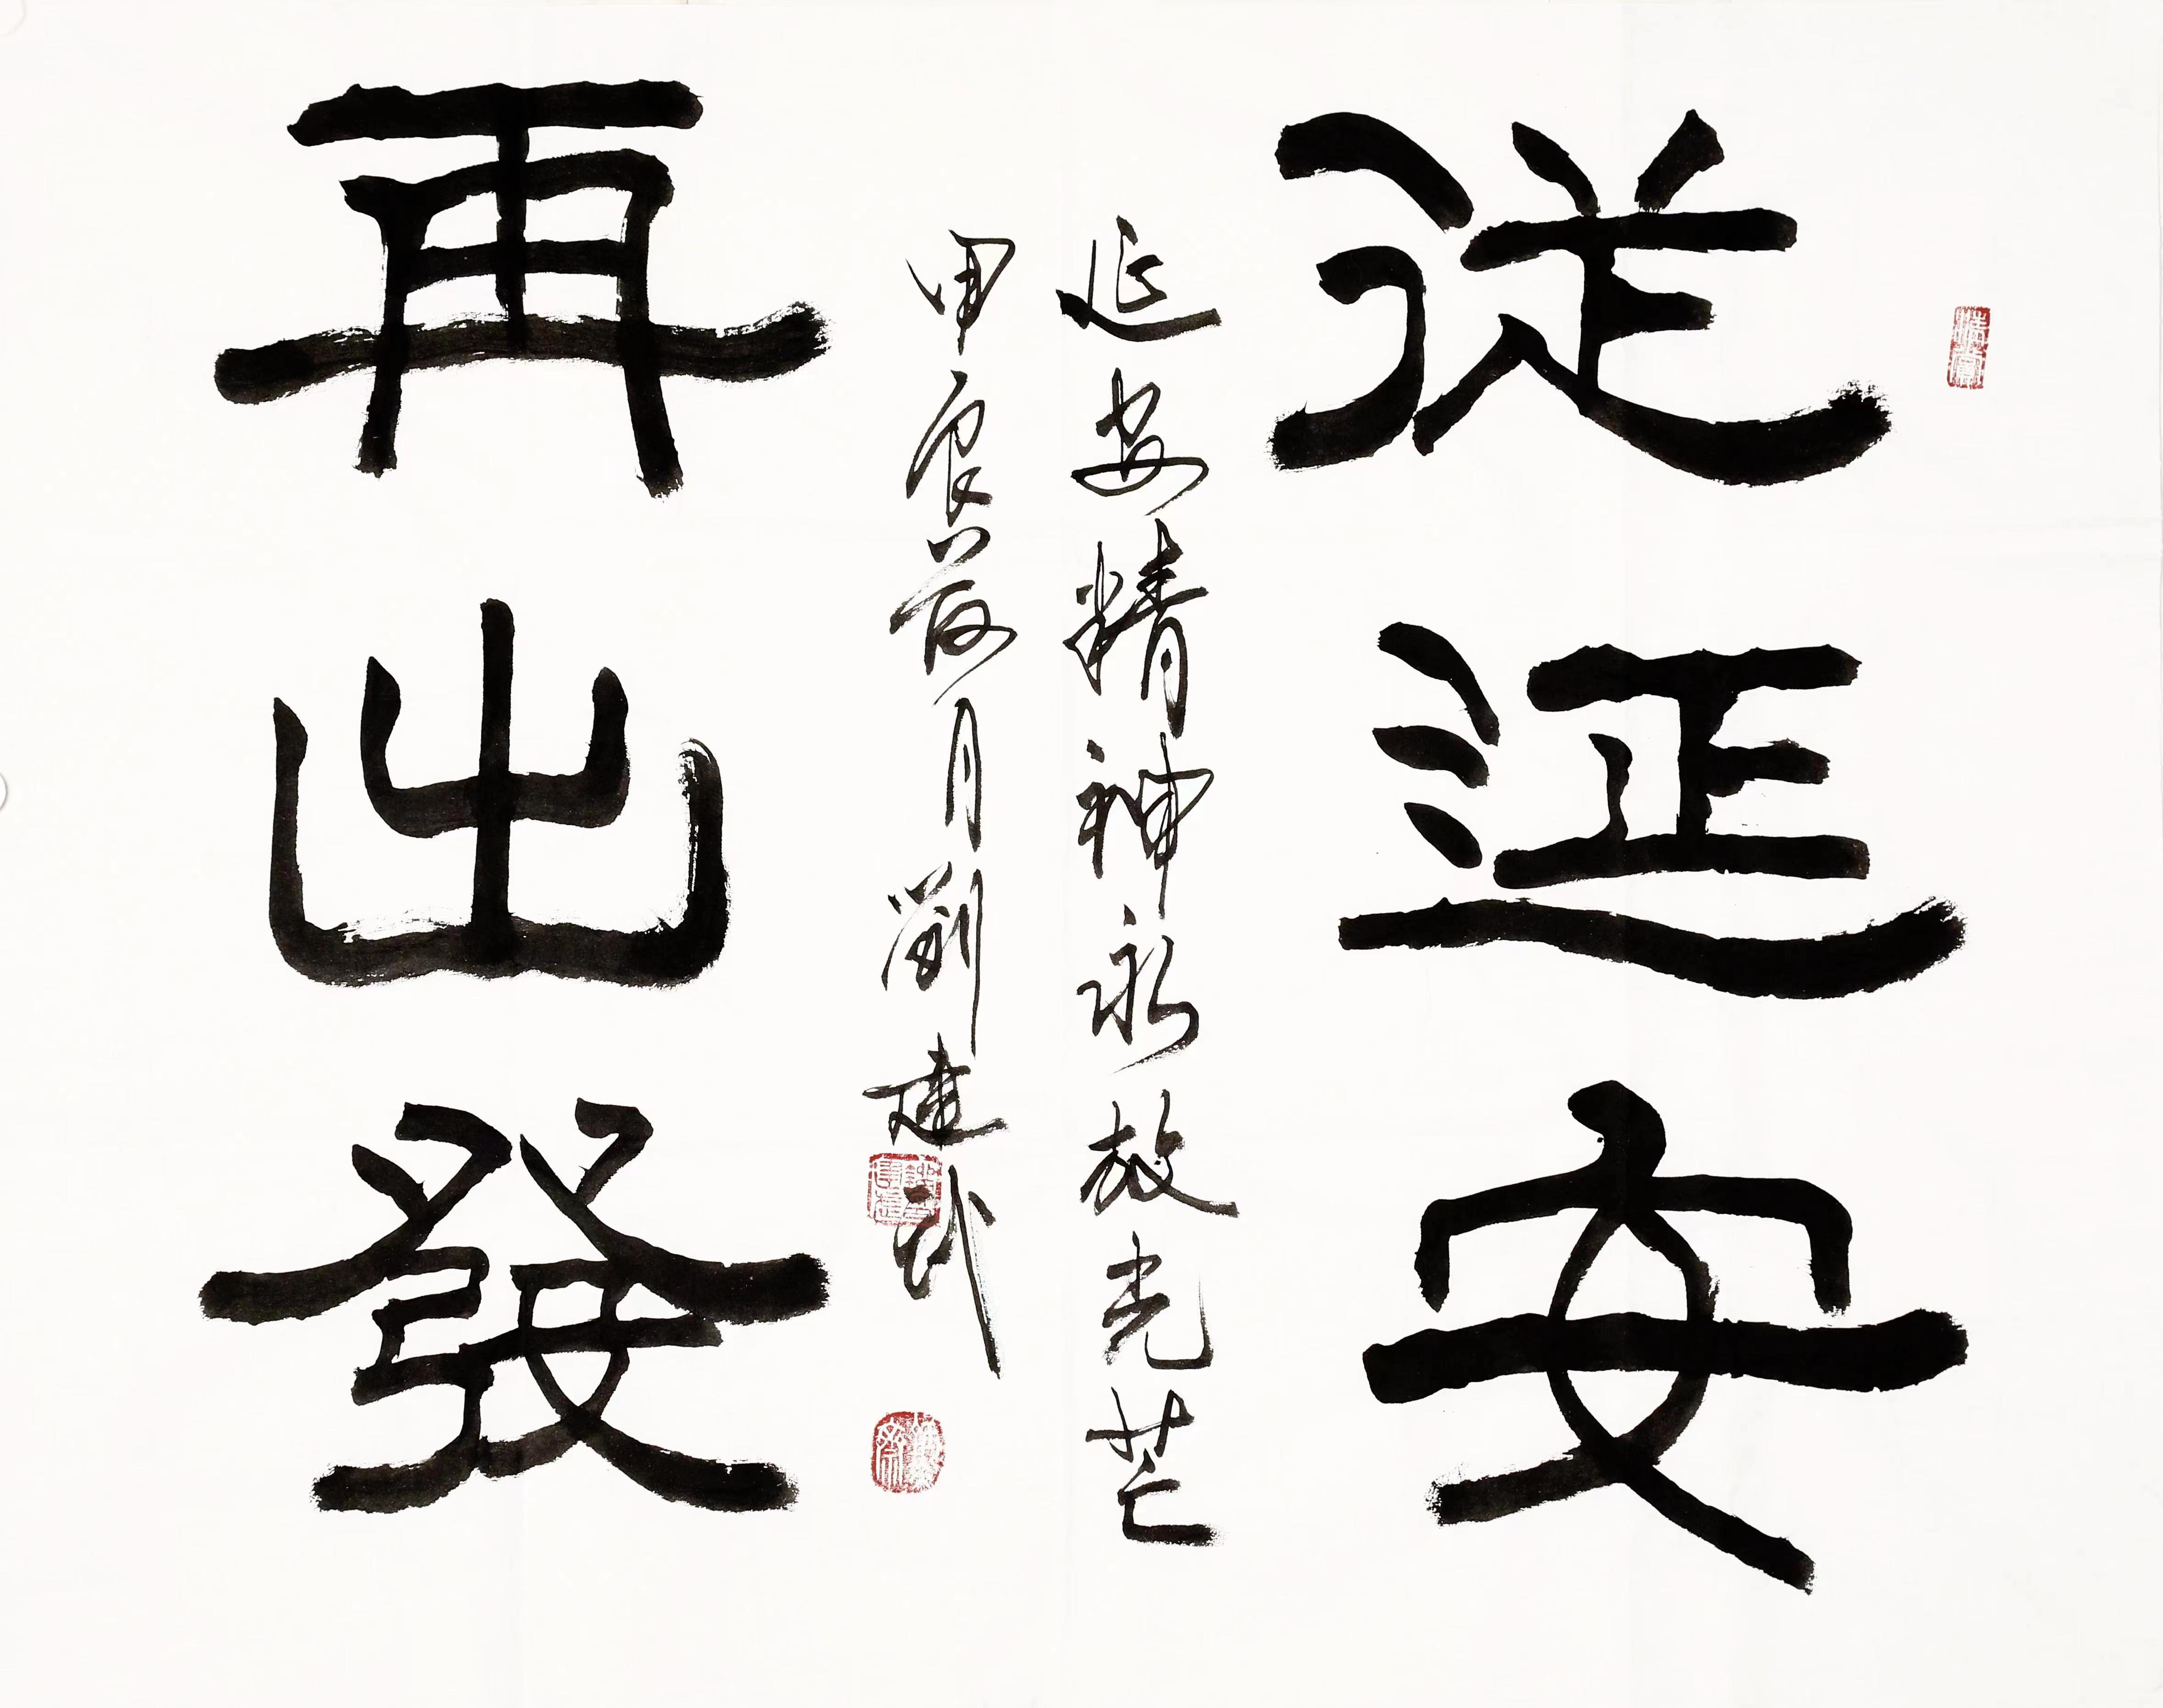 從延安
延安精神永放光芒
甲辰荷月劉建武
再出發